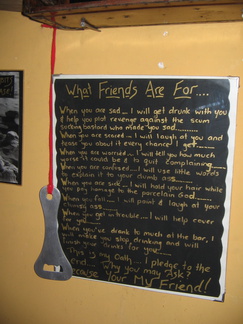 What Friends Are For....
When you are sad... I will get drunk with you
& help you plot revenge against the scum
sucking bastard who made you sad..........
When you are scared... I will laugh at you and
tease you about it every chance I get.........
When you are worried... I will tell you how much
worse it could be & to quit complaining
When you are confused... I will use little words
to explain it to your dumb ass...
When you are sick... I will hold your hair while
you pay homage to the porcelain God.......
When you fall... I will point & laugh at your
clumsy ass...
When you get in trouble.... I will help cover
for you.....
When you've drank to much at the bar, I
will make you stop drinking and will
your drinks for you.....
This is my Oath... I pledge to the
end. Why you may Ask?
Because Your My Friend!